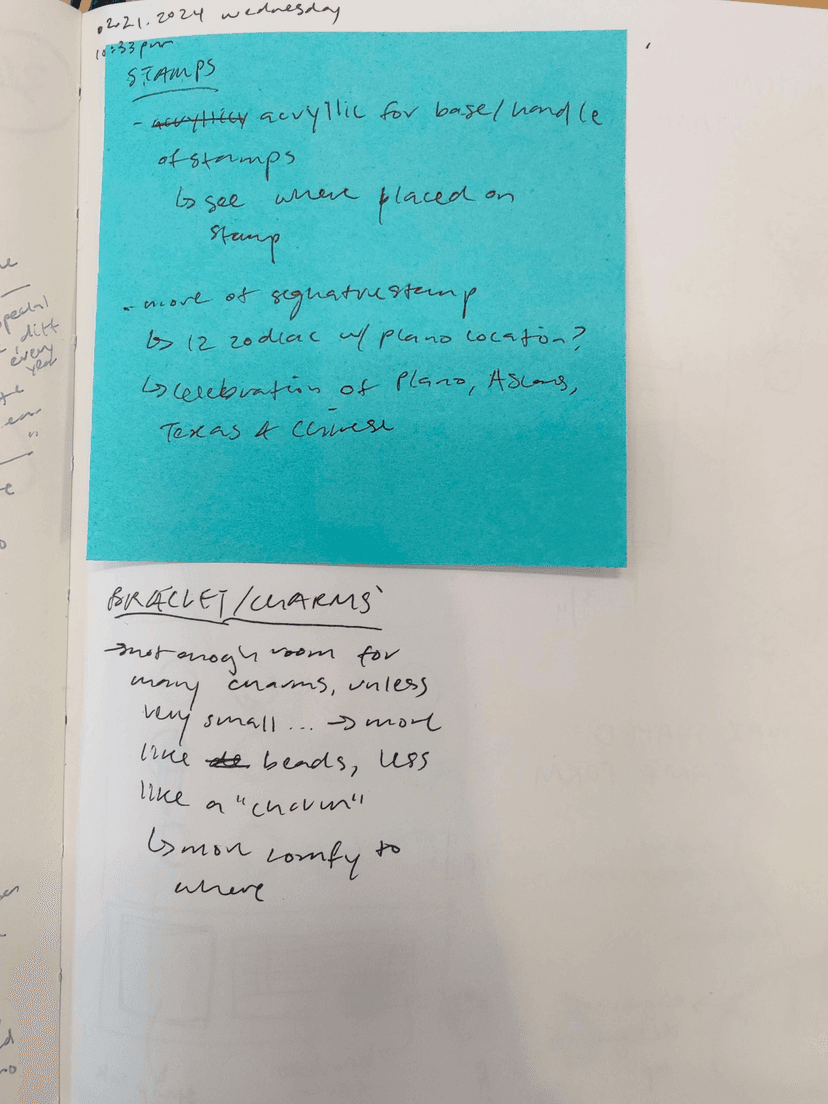 02.21.2024 wednesday
10:33 pm
STAMPS
- acryllicy acryllic for base/handle
of stamps
↳ see where placed on
stamp
- more of signature stamp
↳ 12 zodiac w/ plano location?
↳ celebration of Plano, Asians,
Texas & Chinese
BRACLET/CHARMS
→ not enogh room for
many charms, unless
very small... → more
like beads, less
like a "charm"
↳ more comfy to
where
special
diff
every
year